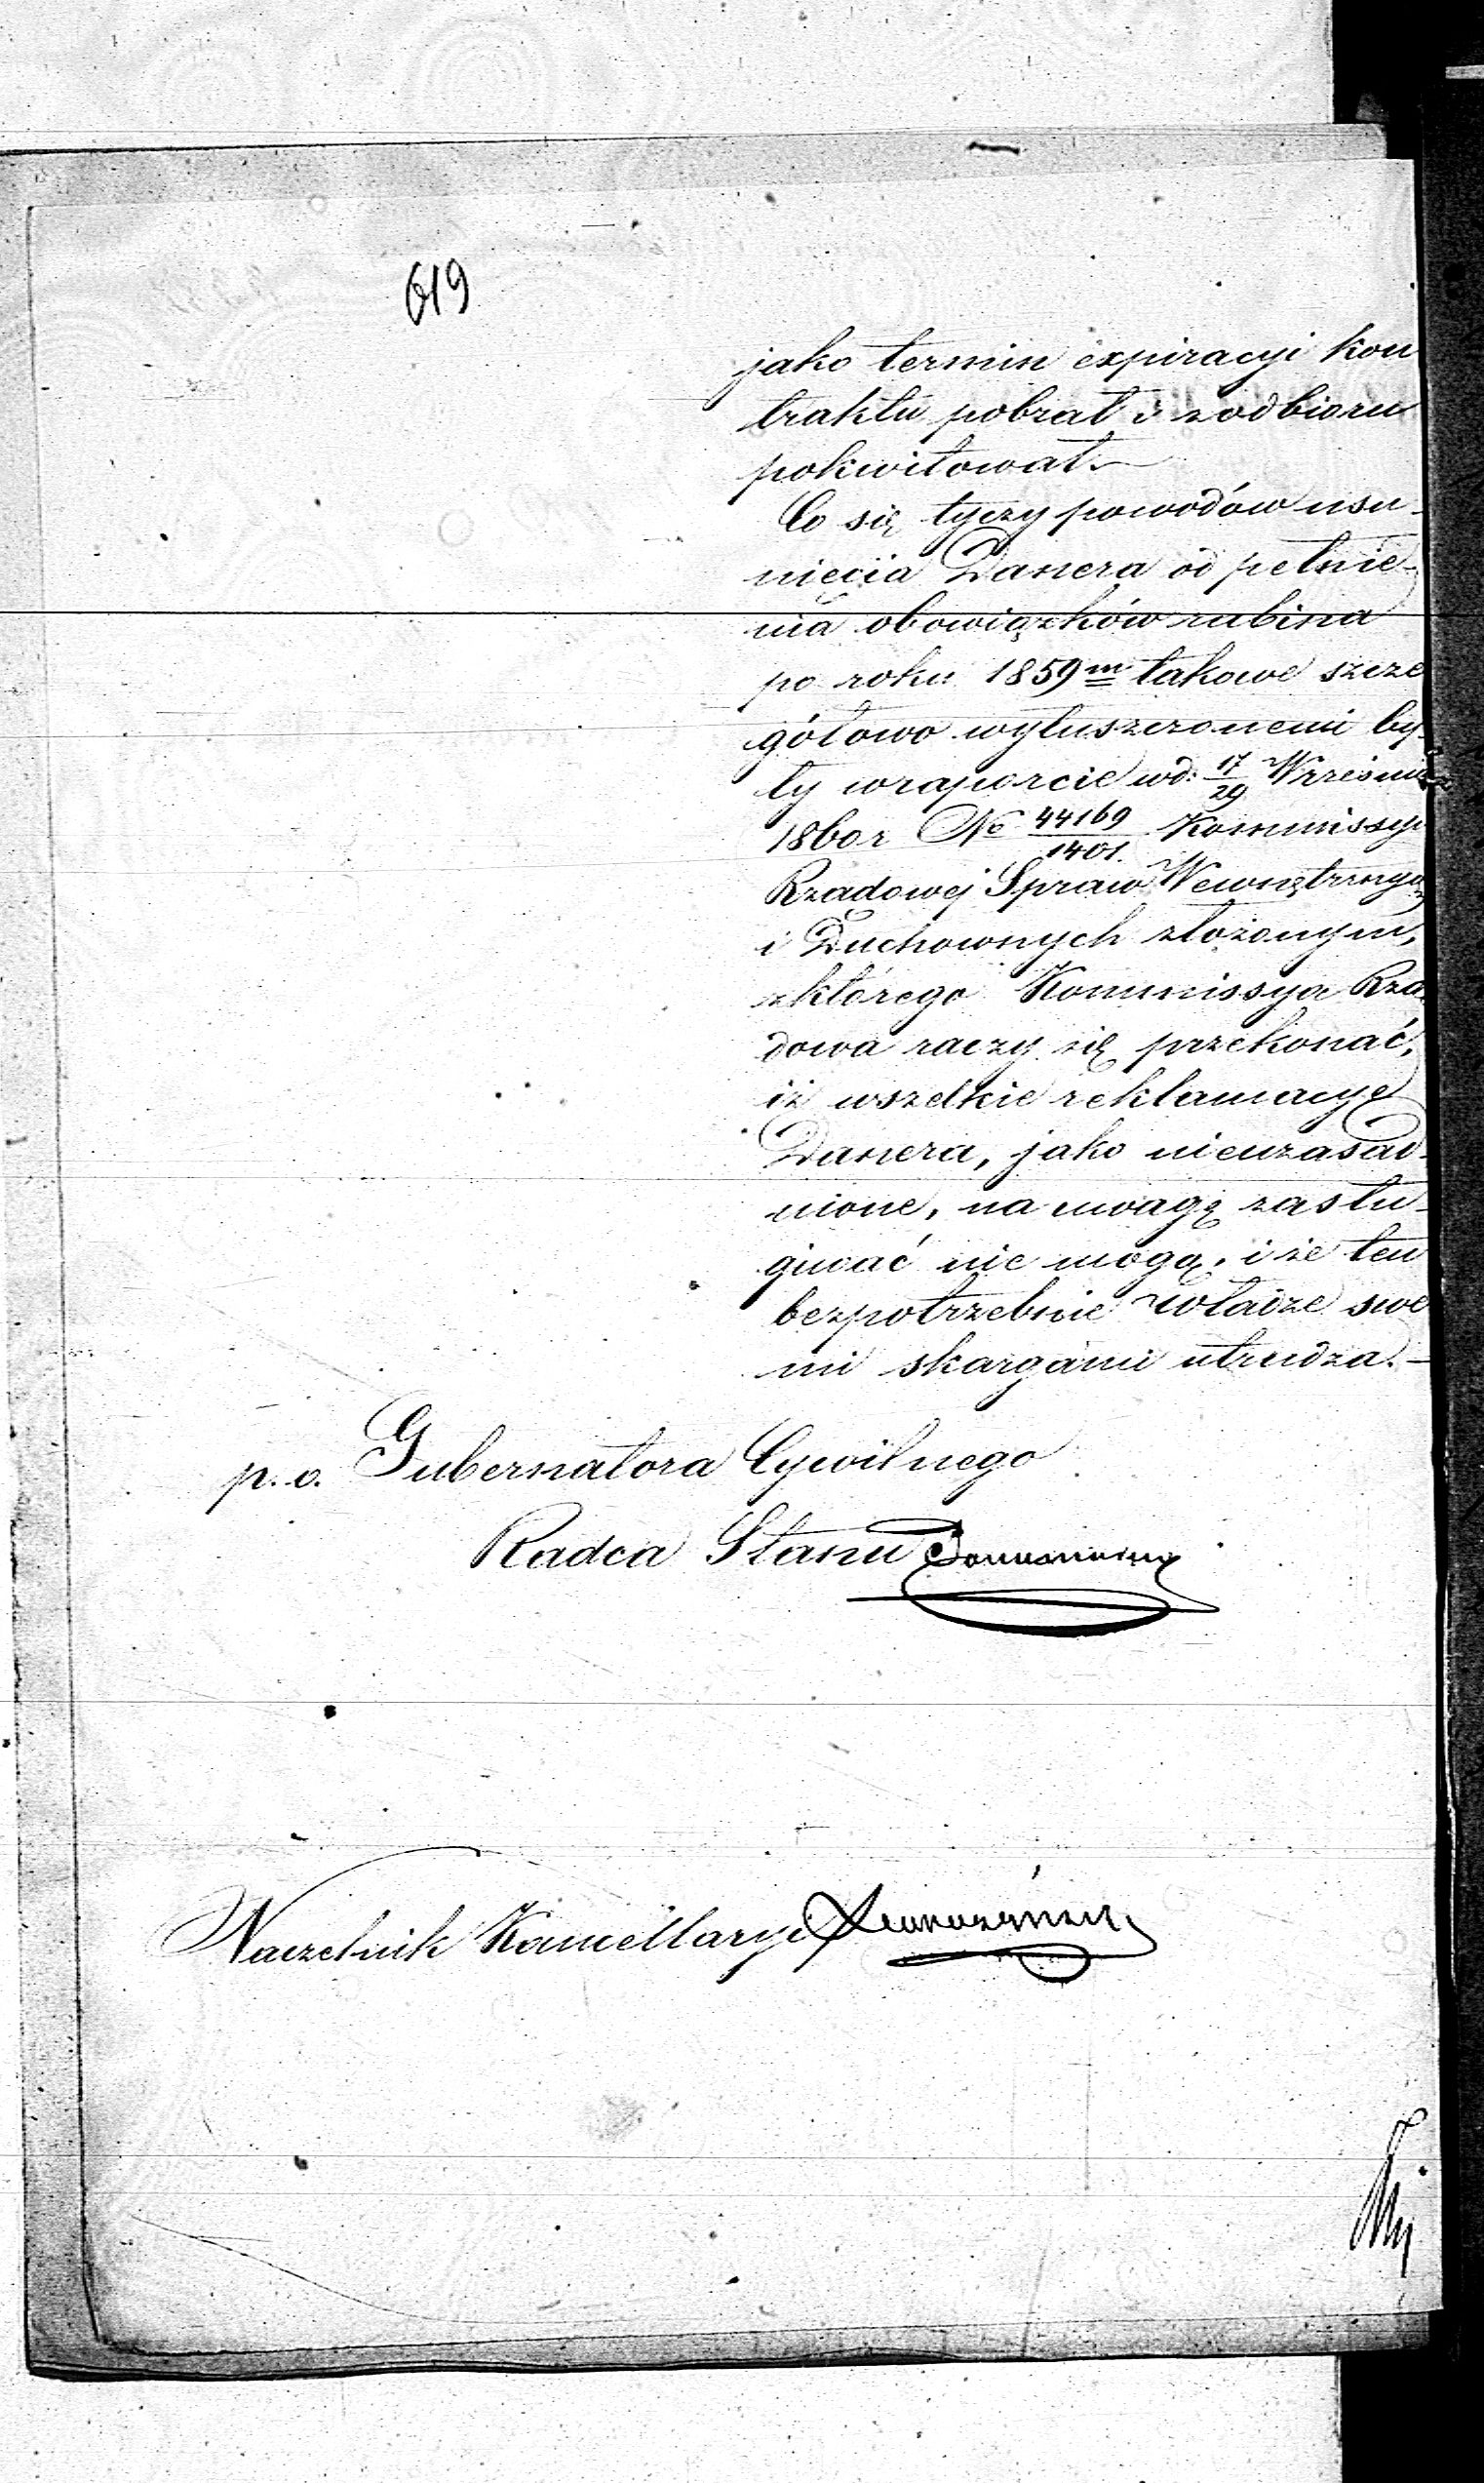 619
jako termin expiracyi kon
traktu pobrał i z odbioru
pokwitował.
Co się tyczy powodów usu-
nięcia Danera od pełnie-
nia obowiązków rabina
po roku 1859m takowe szcze
gółowo wyłuszczonemi by-
ły w raporcie w d: 17/29 Września
1860 r No 44169/1401. Kommissyi
Rządowej Spraw Wewnętrznych
i Duchownych złożonym,
z którego Kommissya Rzą
dowa raczy się przekonać,
iż wszelkie reklamacye
Danera, jako nieuzasad-
nione, na uwagę zasłu-
giwać nie mogą, i że ten
bezpotrzebnie Władze swe
mi skargami utrudza.-
p. o. Gubernatora Cywilnego
Radca Stanu
Naczelnik Kancellaryi